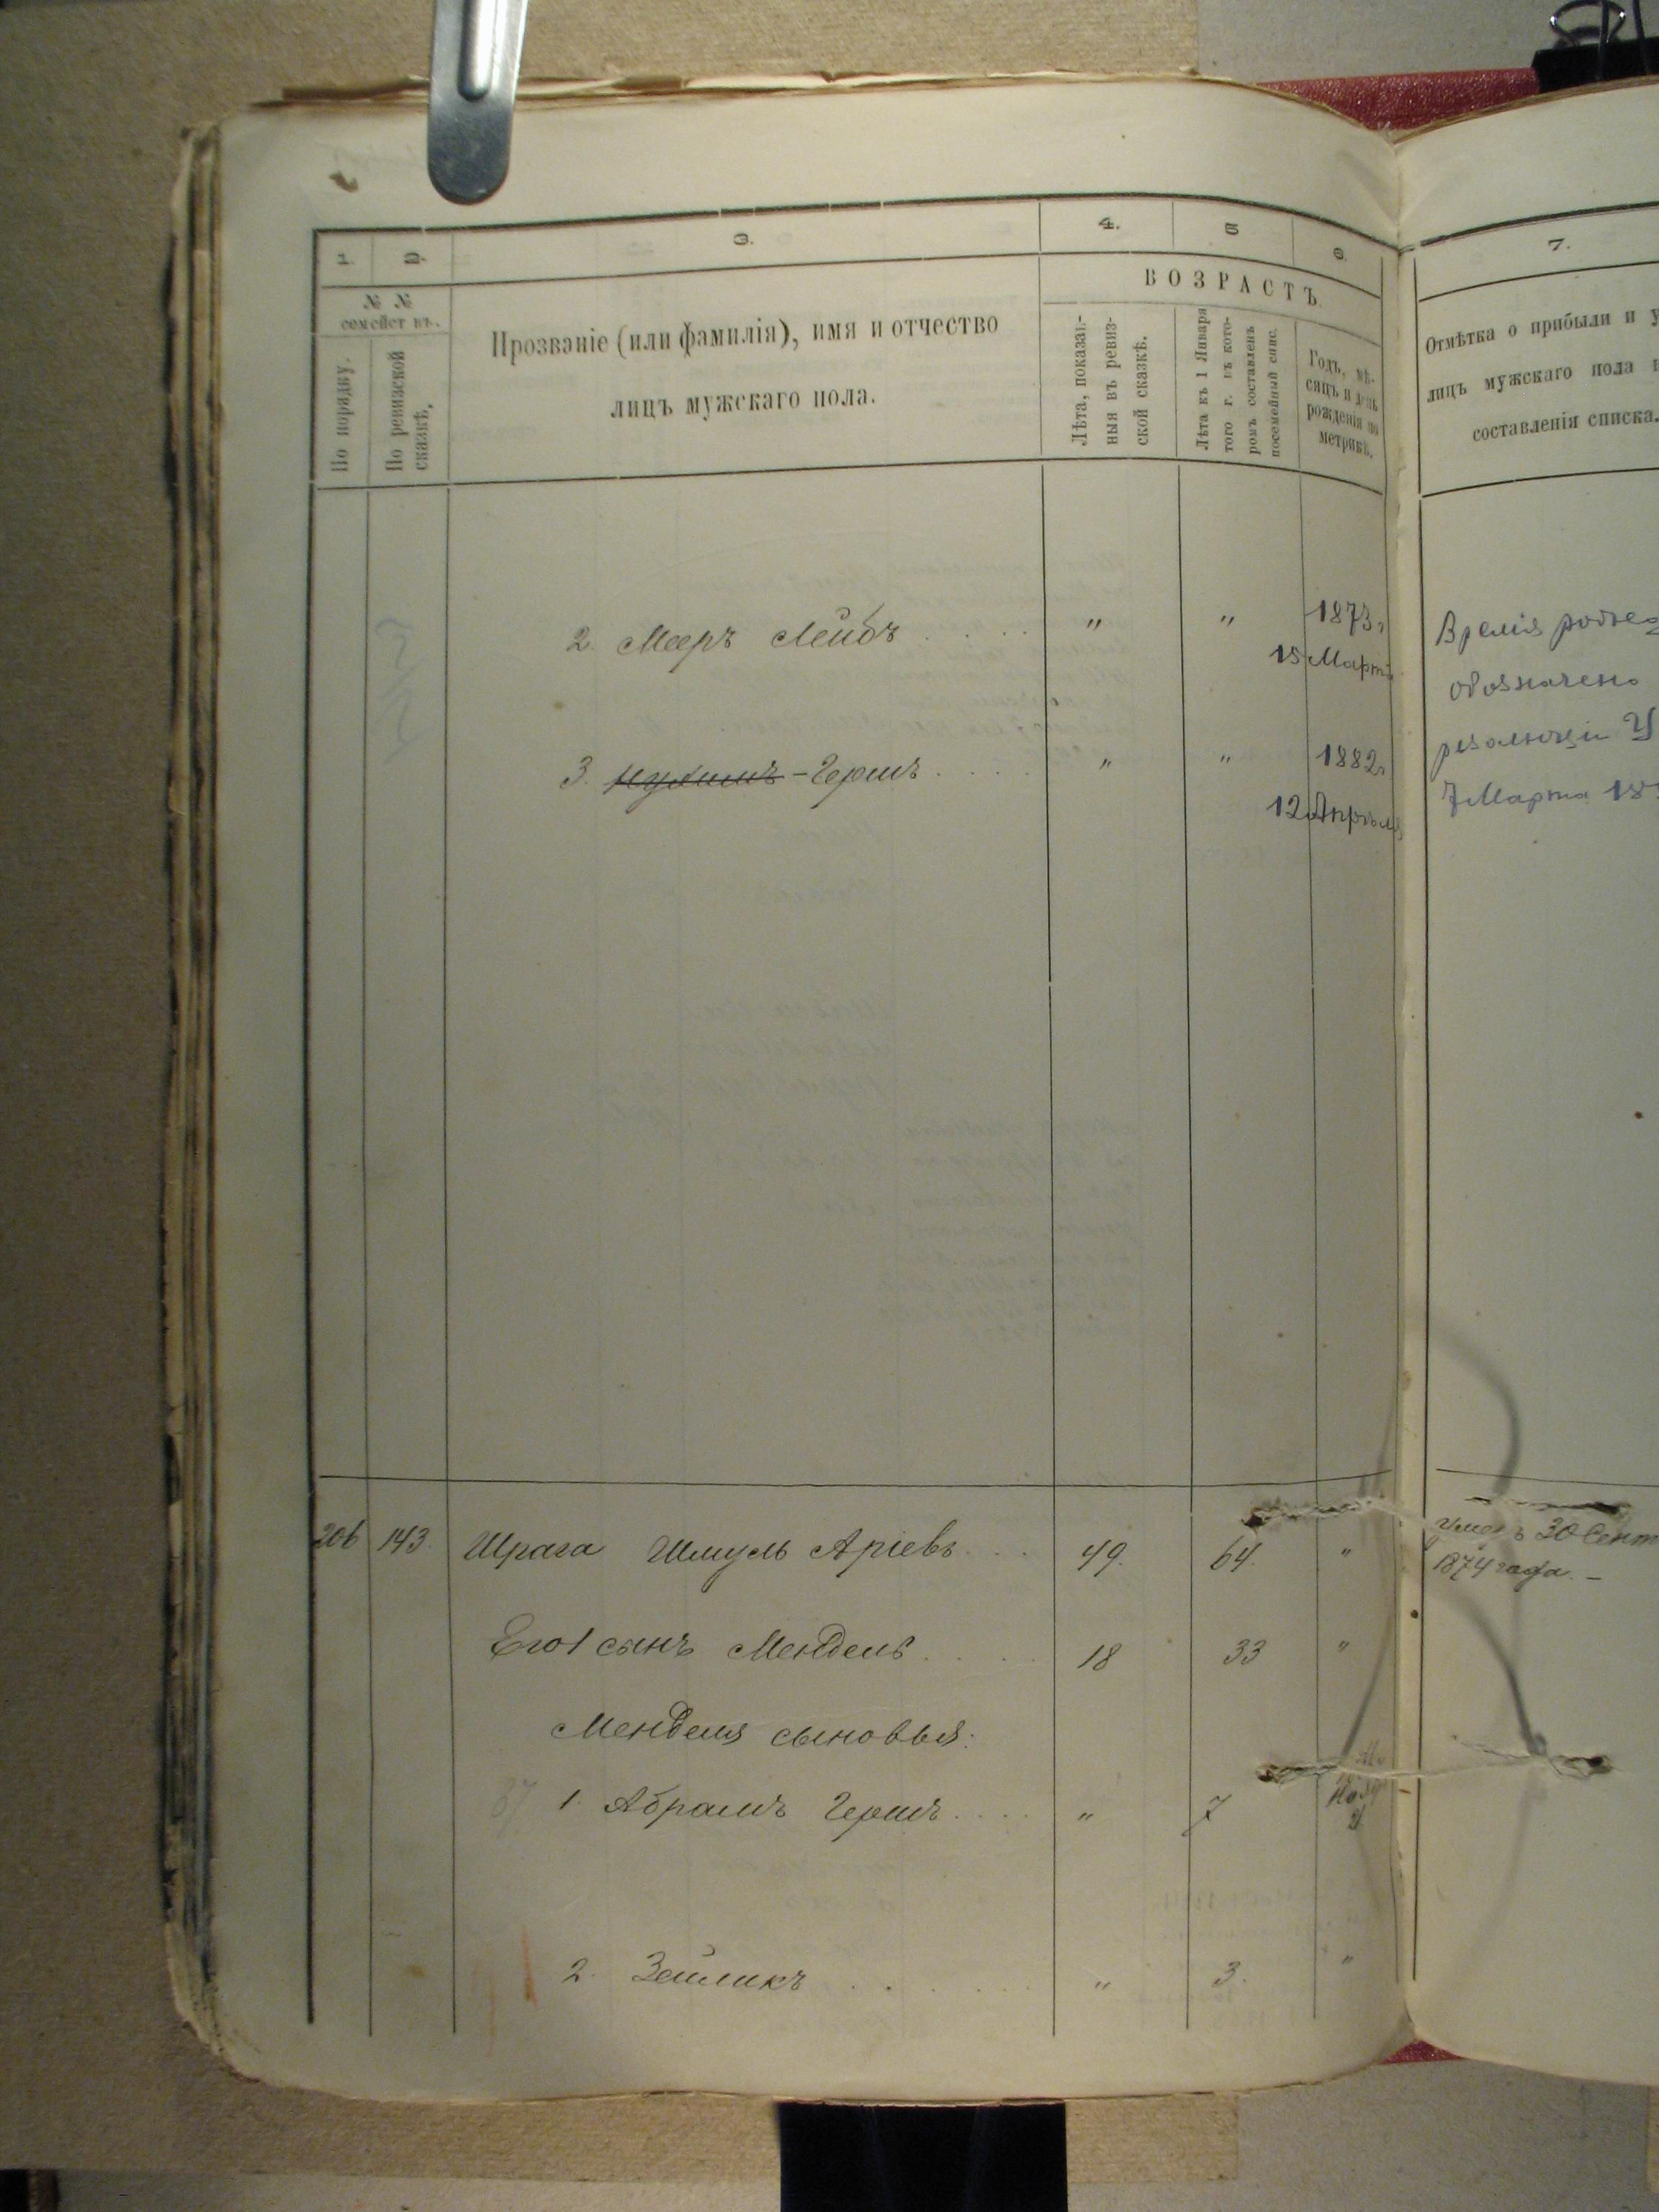 1. 2. 3. 4. 5 6. 7.
№ №
семействъ.
По порядку.
По ревизской
сказкѣ.
Прозваніе (или фамилія), имя и отчество
лицъ мужскаго пола.
ВОЗРАСТЪ.
Лѣта, показан-
ныя въ ревиз-
ской сказкѣ.
Лѣта къ 1 Января
того г. въ кото-
ромъ составленъ
посемейный спис.
Годъ, мѣ-
сяцъ и день
рожденія по
метрикѣ.
Отмѣтка о прибыли и у
лицъ мужскаго пола
составленія списка.
2. Мееръ Лейбъ . . . . " " 1873г
15 Марта
Время
обозначено
резолюціи У
7 Марта 18
3. -Гершъ . . . . " " 1882г
12 Апрѣля
206 143. Шрага Шмуль Аріевъ . . . 49. 64. "
умеръ 30 Сент
1874 года. –
Его 1 сынъ Мендель . . . . 18 33 "
Менделя сыновья:
1. Абрамъ Гершъ . . . . " 7
2. Зейликъ . . . . . " 3. "